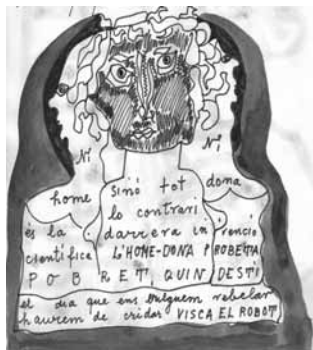 Ni Ni
home sinó tot dona
lo contrari
és la darrera invenció
científica L'HOME-DONA PROBETA
POBRET QUIN DESTÍ
el dia que ens vulguem rebelar
haurem de cridar VISCA EL ROBOT